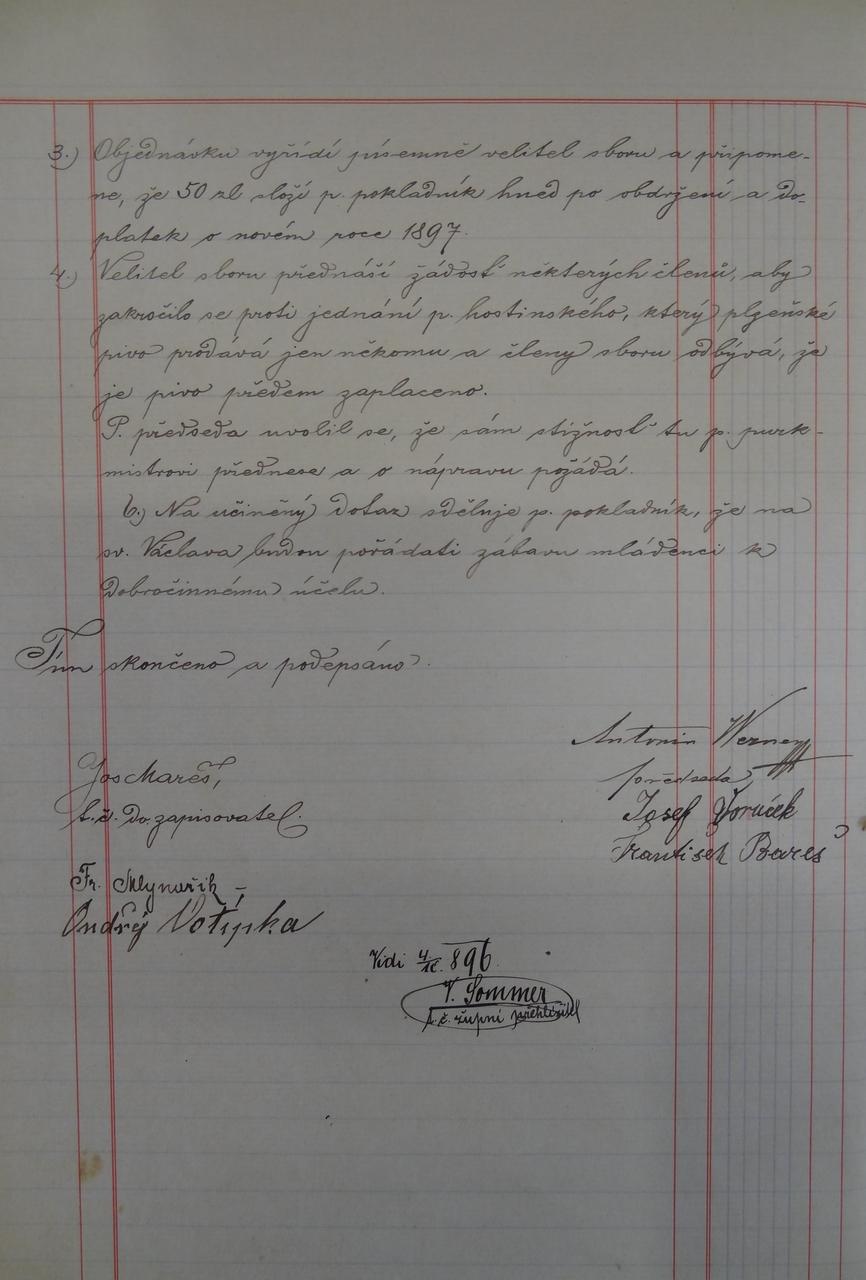 3.) Objednávku vyřídí písemně velitel sboru a připome-
ne, že 50 zl složí p. pokladník hned po obdržení a do-
platek o novém roce 1897.
4.) Velitel sboru přednáší žádosť některých členů, aby
zakročilo se proti jednání p. hostinského, který plzeňské
pivo prodává jen někomu a členy sboru odbývá, že
je pivo předem zaplaceno.
P. předseda uvolil se, že sám stížnosť tu p. purk-
mistrovi přednese a o nápravu požádá.
6.) Na učiněný dotaz sděluje p. pokladník, že na
sv. Václava budou pořádati zábavu mládenci k
dobročinnému účelu.
Tím skončeno a podepsáno.
Antonín Werner
předseda
Jos Mareš,
t.č. zapisovatel.
Josef Voráček
František Bareš
Fr. Mlynařík
Ondřej Votýpka
Vidi 896.
V. Sommer
t.č. župní